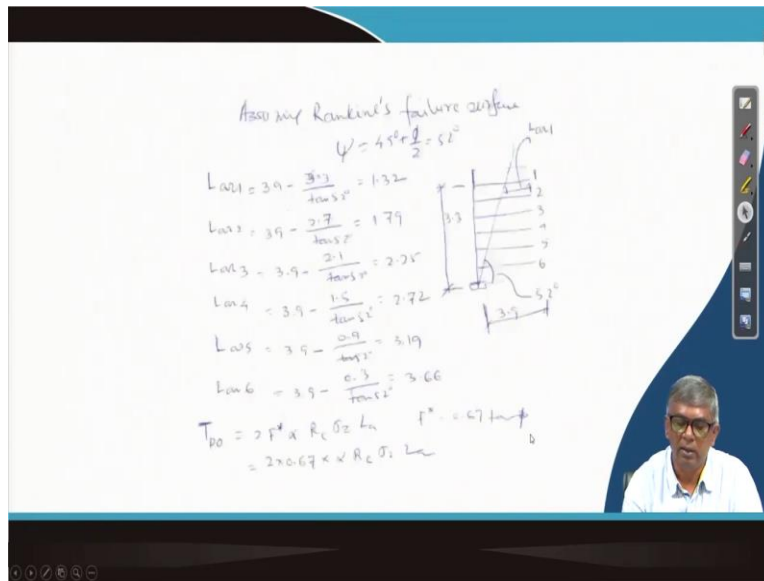 Assuming Rankine's failure surface
ψ = 45° + φ/2 = 52°
La1 = 3.9 - 3.3/tan52° = 1.32
La2 = 3.9 - 2.7/tan52° = 1.79
La3 = 3.9 - 2.1/tan52° = 2.25
La4 = 3.9 - 1.5/tan52° = 2.72
La5 = 3.9 - 0.9/tan52° = 3.19
La6 = 3.9 - 0.3/tan52° = 3.66
Tpo = 2 F* α Rc σz La F* = .67 tanφ
= 2×0.67 × α Rc σz La
La1
1
2
3
4
5
6
3.3
52°
3.9